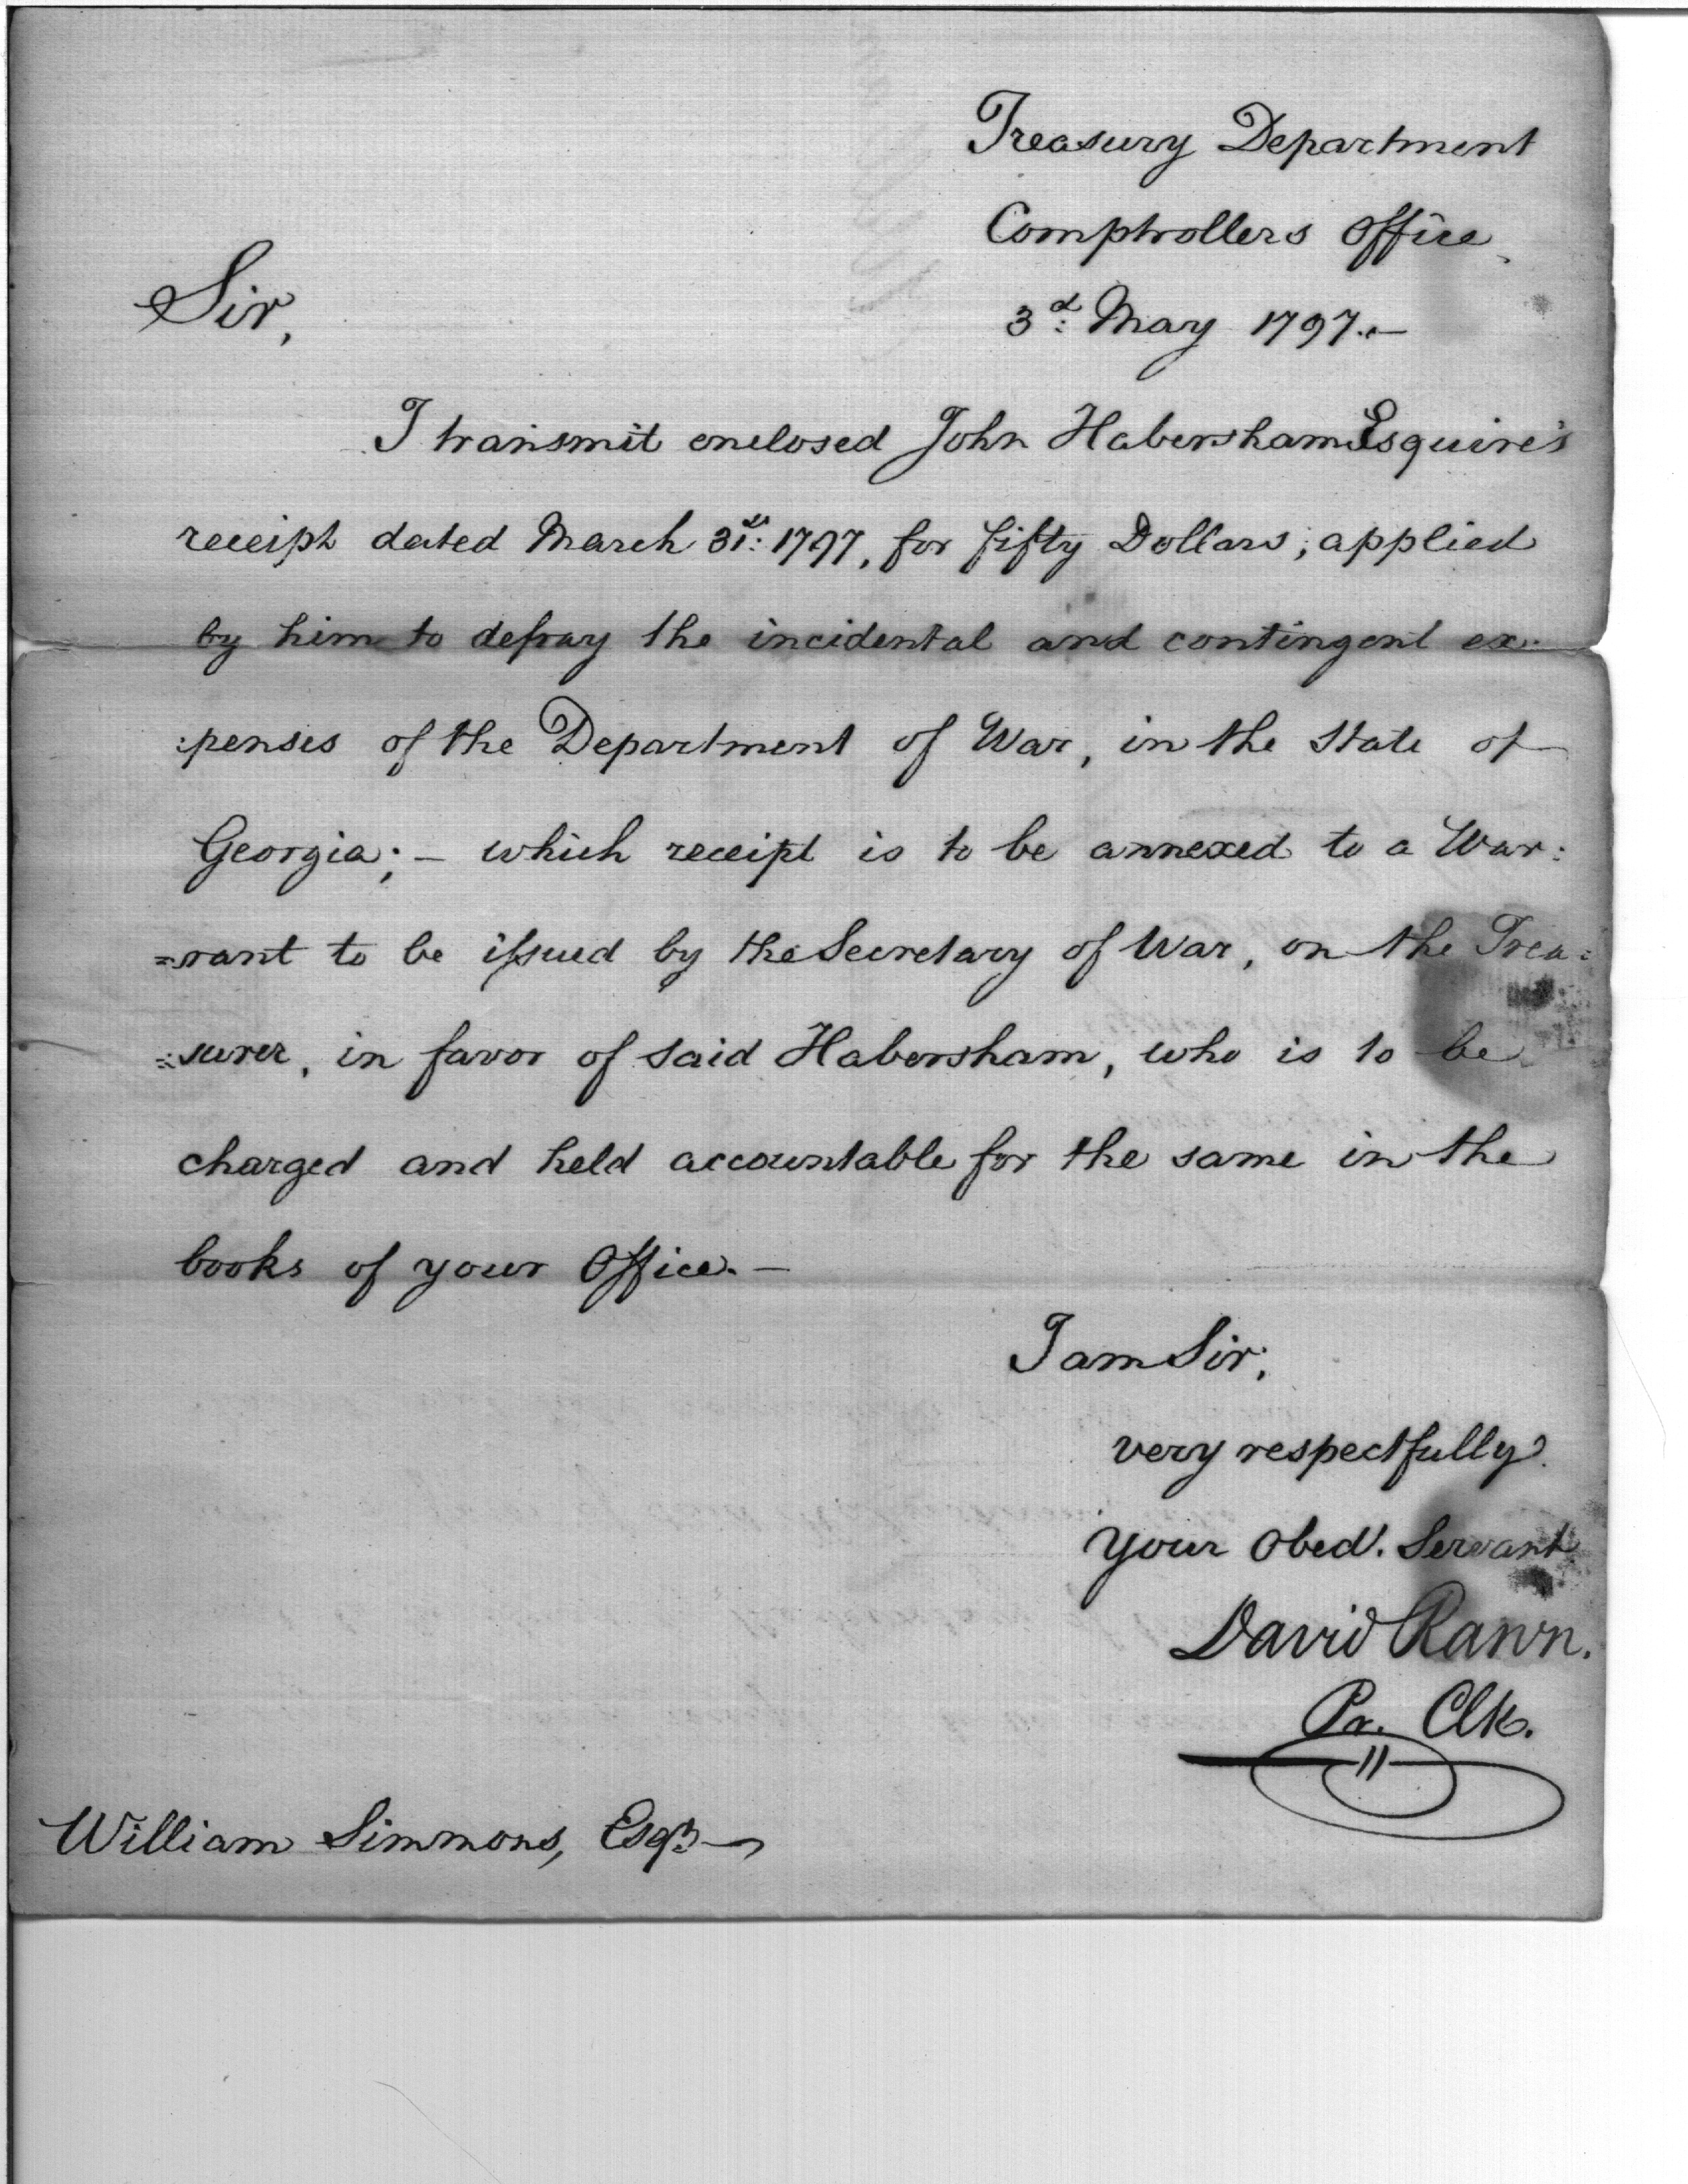 Treasury Department
Comptrollers Office
3d: May 1797.—
Sir,
I transmit enclosed John Habersham Esquire's
receipt dated March 31st: 1797, for fifty Dollars; applied
by him to defray the incidental and contingent ex:
:penses of the Department of War, in the State of
Georgia; — which receipt is to be annexed to a War:
=rant to be issued by the Secretary of War, on the Trea:
=surer, in favor of said Habersham, who is to be
charged and held accountable for the same in the
books of your Office. —
I am Sir,
very respectfully
Your Obedt. Servant
David Rawn.
Pr. Clk.
William Simmons, Esqr.